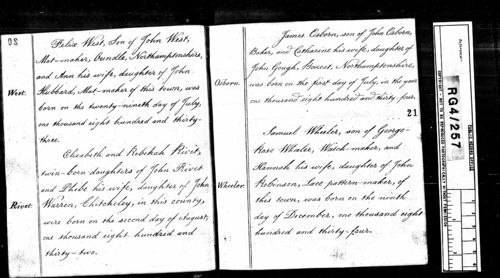 20
West.
Felix West, Son of John West,
Mat-maker, Oundle, Northamptonshire,
and Ann his wife, daughter of John
Hubbard, Mat-maker of this town, was
born on the twenty-ninth day of July,
one thousand eight hundred and thirty-
three.
Rivet.
Elizabeth and Rebekah Rivet,
twin-born daughters of John Rivet
and Phebe his wife, daughter of John
Warren, in this county,
were born on the second day of August,
one thousand eight hundred and
thirty-two.
Osborn.
James Osborn, son of John Osborn,
Baker, and Catharine his wife, daughter of
John Gough, Northamptonshire,
was born on the first day of July, in the year
one thousand eight hundred and thirty-four.
21
Wheeler.
Samuel Wheeler, son of George-
Rose Wheeler, Watch-maker, and
Hannah his wife, daughter of John
Robinson, Lace pattern-maker, of
this town, was born on the ninth
day of December, one thousand eight
hundred and thirty-four.
RG4/257